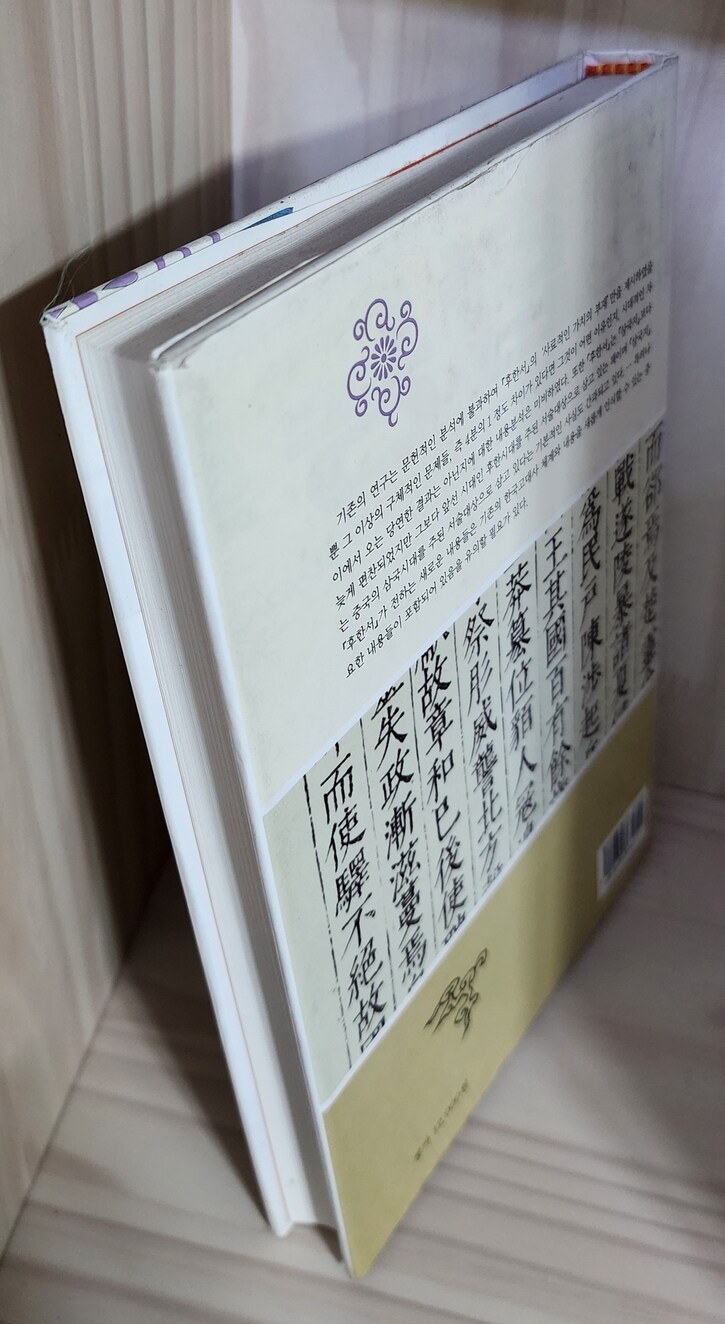 기존의 연구는 문헌적인 분석에 불과하여 『후한서』의 '사료적인 가치의 부재'만을 제시하였을
뿐 그 이상의 구체적인 문제들, 즉 4분의 1 정도 차이가 있다면 그것이 어떤 이유인지, 시대적인 차
이에서 오는 당연한 결과는 아닌지에 대한 내용분석은 미비하였다. 또한 『후한서』는 『삼국지』보다
늦게 편찬되었지만 그보다 앞선 시대인 후한시대를 주된 서술대상으로 삼고 있는 데 『삼국지』
는 중국의 삼국시대를 주된 서술대상으로 삼고 있다는 기본적인 사실도 간과되고 있다.
『후한서』가 전하는 새로운 내용들은 기존의 한국고대사 체계와 내용을 새롭게 인식할 수 있는 중
요한 내용들이 포함되어 있음을 유의할 필요가 있다.
戰遂陸梁諸夏
爲民戶陳涉起
王其國百有餘
莽墓位貊人寇
祭肜威讋北方
故章和已後使
失政漸滋蔓焉
而使驛不絕故國